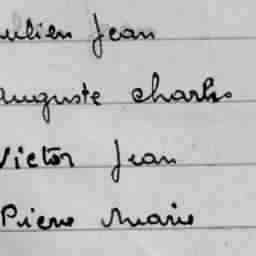 ulien Jean
auguste charles
Victor Jean
Pierre Marie